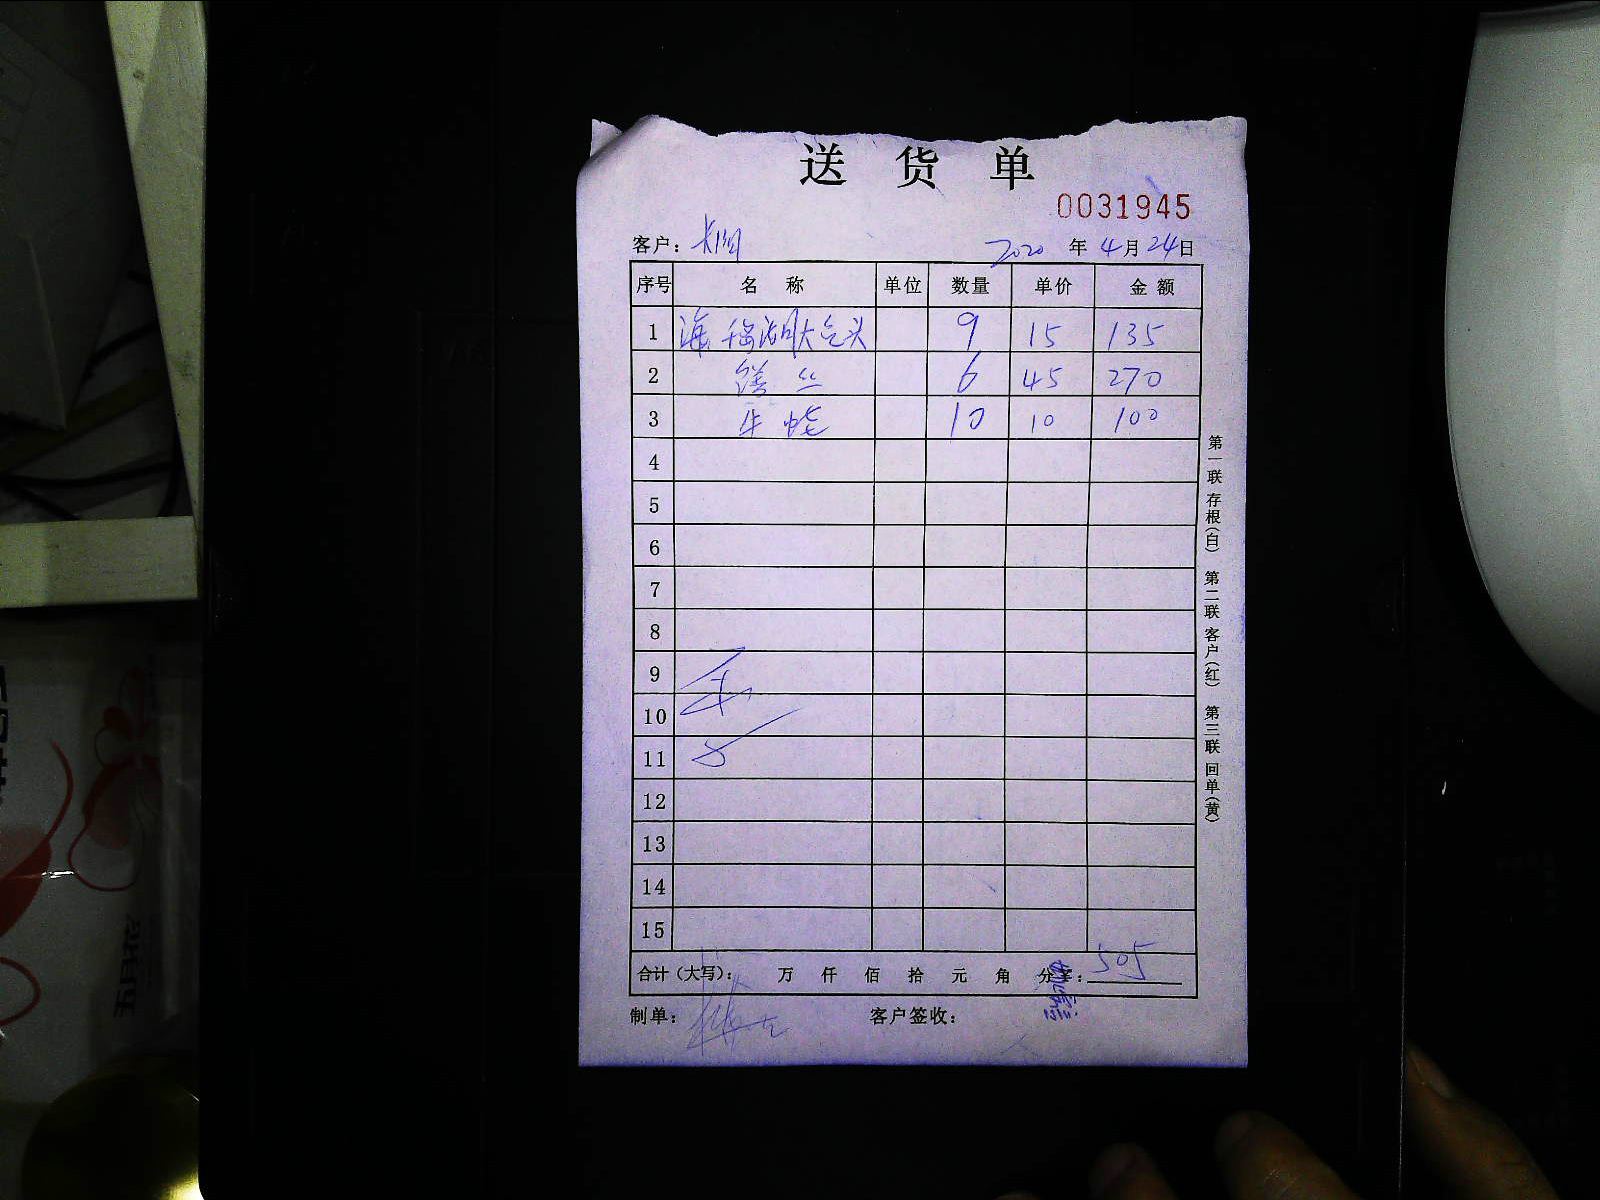 送 货 单
0031945
客户：
2020 年 4 月 24 日
序号 名 称 单位 数量 单价 金 额
1 9 15 135
2 6 45 270
3 10 10 100
4
5
6
7
8
9
10
11
12
13
14
15
合计（大写）： 万 仟 佰 拾 元 角 分 505
制单： 客户签收：
第一联 存根（白） 第二联 客户（红） 第三联 回单（黄）